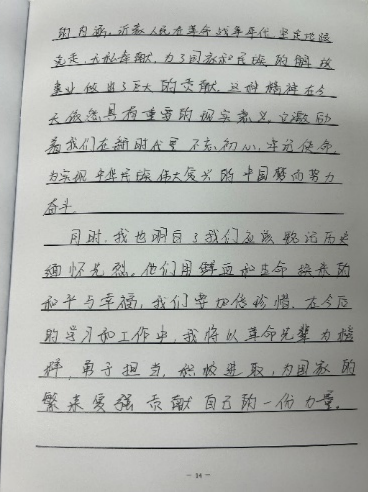 的内涵。沂蒙人民在革命战争年代,坚定地跟
党走,无私奉献,为了国家和民族的解放
事业做出了巨大的贡献。这种精神在今
天依然具有重要的现实意义,它激励
着我们在新时代要不忘初心,牢记使命,
为实现中华民族伟大复兴的中国梦而努力
奋斗。
同时,我也明白了我们应该铭记历史
缅怀先烈。他们用鲜血和生命换来的
和平与幸福,我们要加倍珍惜。在今后
的学习和工作中,我将以革命先辈为榜
样,勇于担当,积极进取,为国家的
繁荣富强贡献自己的一份力量。
- 94 -